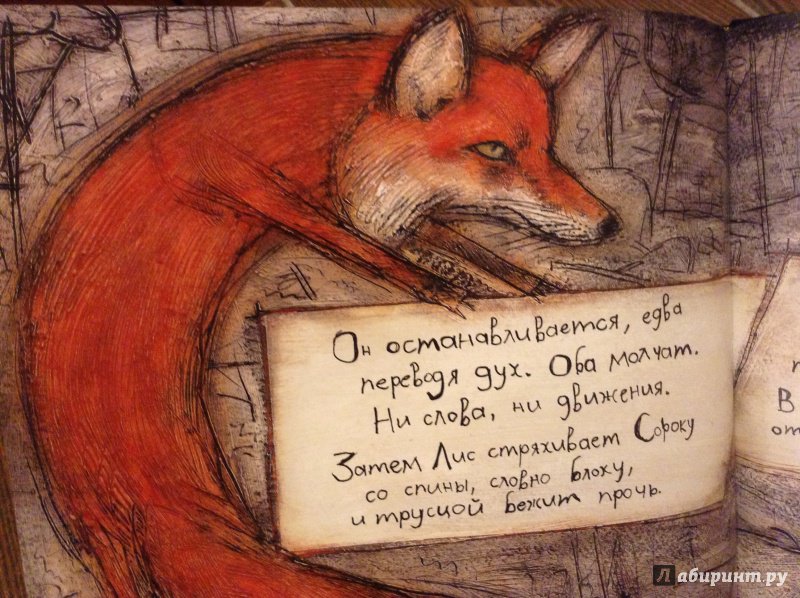 Он останавливается, едва
переводя дух. Оба молчат.
Ни слова, ни движения.
Затем Лис стряхивает Сороку
со спины, словно блоху,
и трусцой бежит прочь.
В
от
Лабиринт.ру